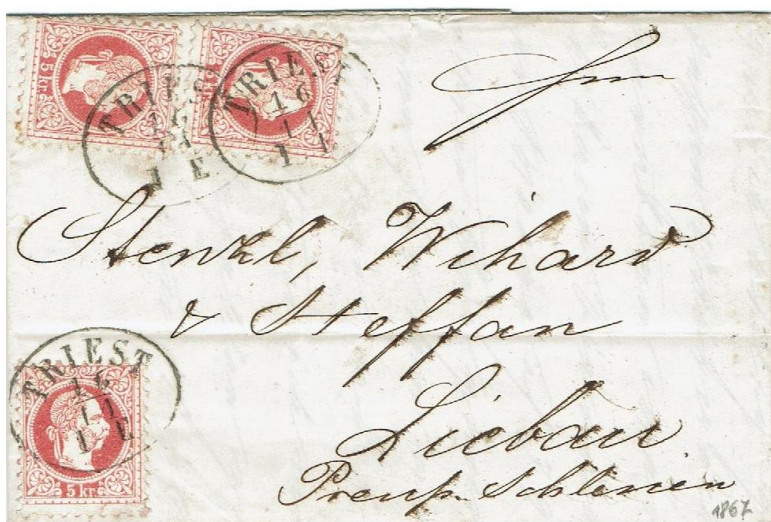 5 kr.
TRIEST
16
11
1. E
TRIEST
16
11
Stenzl, Wihard
& Steffan
Liebau
Preuß. Schlesien
TRIEST
16
11
1. E
5 kr.
1867